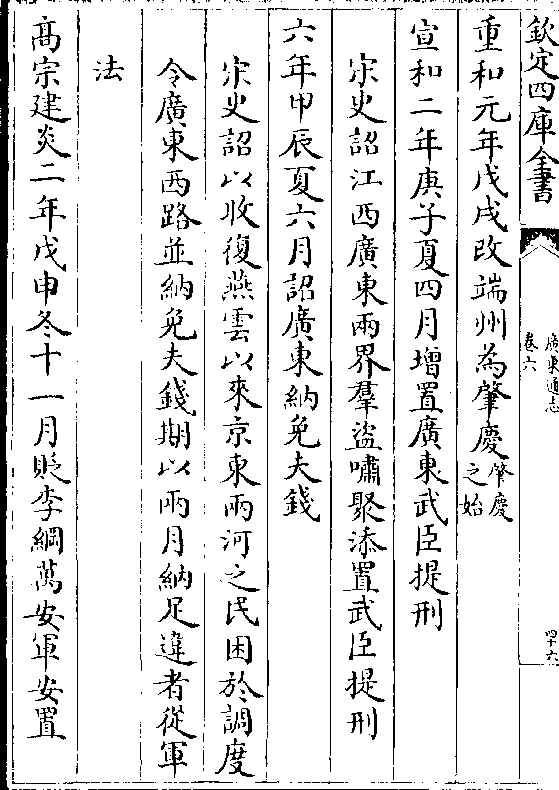 欽定四庫全書
廣東通志
卷六
四十六
重和元年戊戌改端州為肇慶肇慶
之始
宣和二年庚子夏四月增置廣東武臣提刑
宋史詔江西廣東兩界羣盜嘯聚添置武臣提刑
六年甲辰夏六月詔廣東納免夫錢
宋史詔以收復燕雲以來京東兩河之民困於調度
令廣東西路並納免夫錢期以兩月納足違者從軍
法
髙宗建炎二年戊申冬十一月貶李綱萬安軍安置